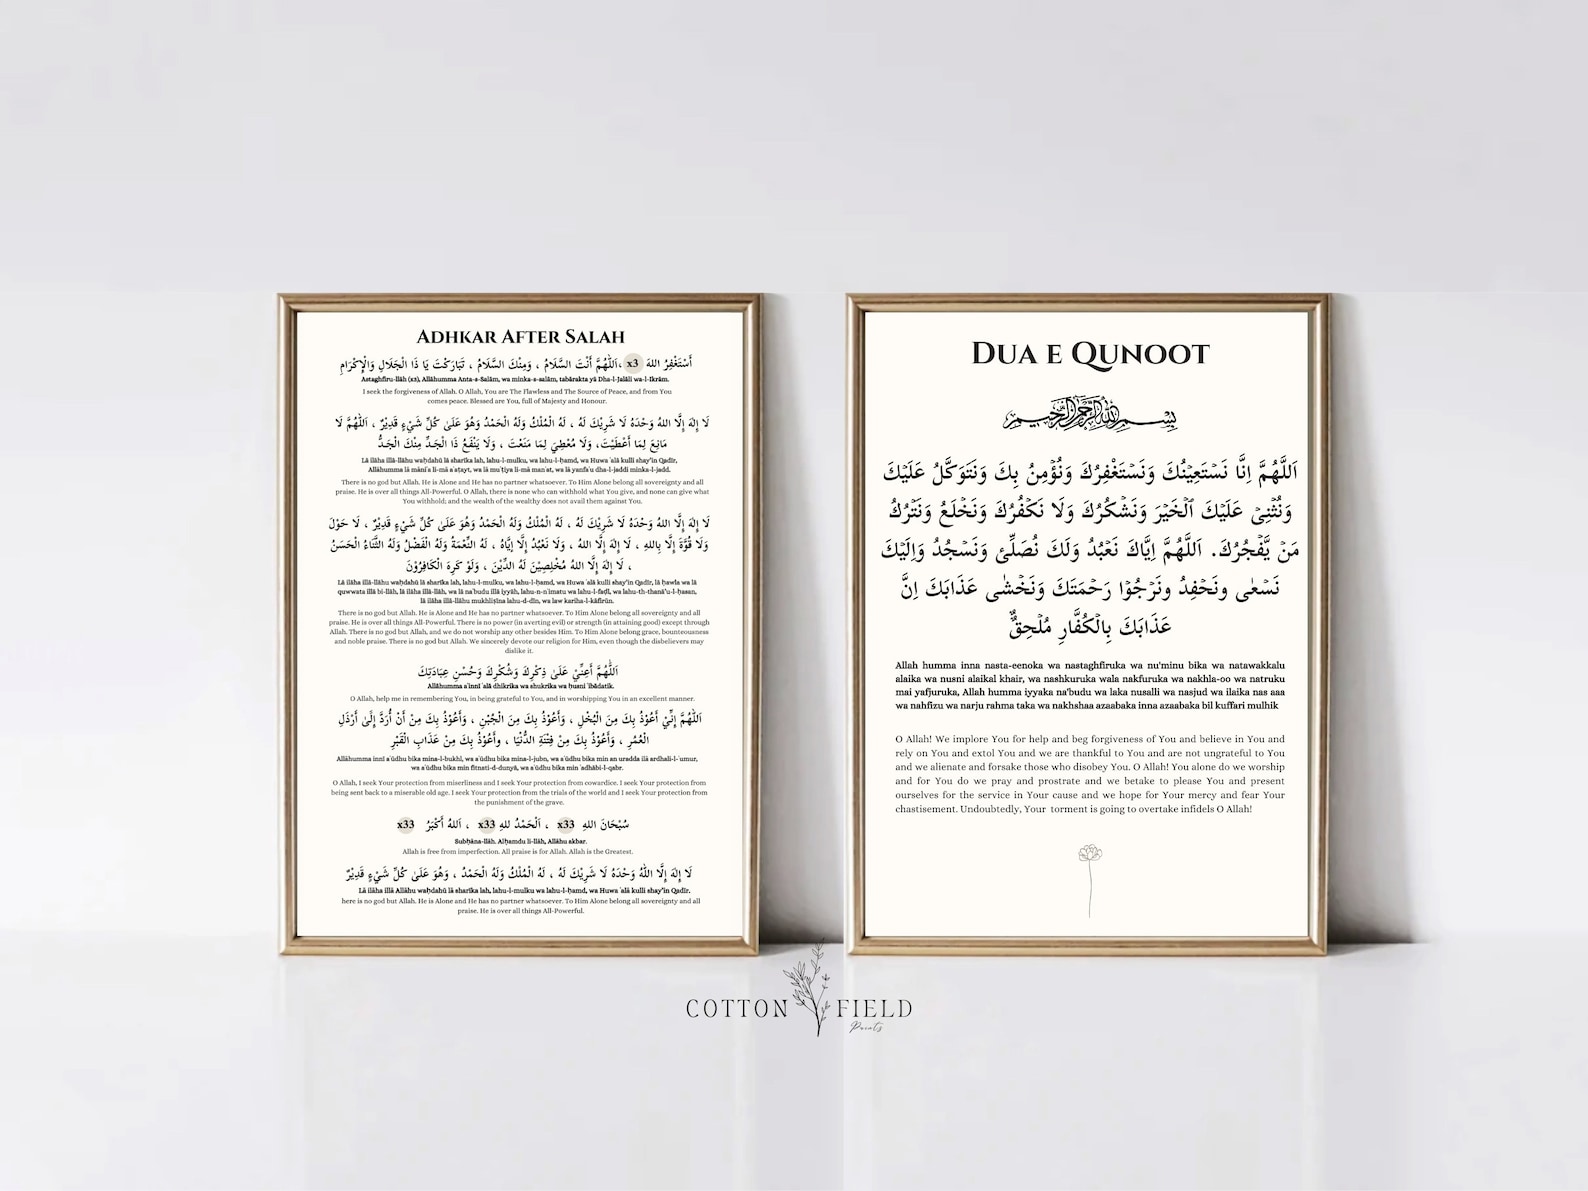 ADHKAR AFTER SALAH
أَسْتَغْفِرُ اللهَ x3 ،اَللّٰهُمَّ أَنْتَ السَّلَامُ ، وَمِنْكَ السَّلَامُ ، تَبَارَكْتَ يَا ذَا الْجَلَالِ وَالْإِكْرَامِ
Astaghfiru-llāh (x3), Allāhumma Anta-s-Salām, wa minka-s-salām, tabārakta yā Dha-l-Jalāli wa-l-Ikrām.
I seek the forgiveness of Allah. O Allah, You are The Flawless and The Source of Peace, and from You
comes peace. Blessed are You, full of Majesty and Honour.
لَا إِلٰهَ إِلَّا اللهُ وَحْدَهُ لَا شَرِيْكَ لَهُ ، لَهُ الْمُلْكُ وَلَهُ الْحَمْدُ وَهُوَ عَلَىٰ كُلِّ شَيْءٍ قَدِيْرٌ ، اَللّٰهُمَّ لَا
مَانِعَ لِمَا أَعْطَيْتَ، وَلَا مُعْطِيَ لِمَا مَنَعْتَ ، وَلَا يَنْفَعُ ذَا الْجَدِّ مِنْكَ الْجَدُّ
Lā ilāha illā-llāhu waḥdahū lā sharīka lah, lahu-l-mulku, wa lahu-l-ḥamd, wa Huwa ʿalā kulli shay'in Qadīr,
Allāhumma lā māniʿa li-mā aʿaṭayt, wa lā muʿṭiya li-mā manʿat, wa lā yanfaʿu dha-l-jaddi minka-l-jadd.
There is no god but Allah. He is Alone and He has no partner whatsoever. To Him Alone belong all sovereignty and all
praise. He is over all things All-Powerful. O Allah, there is none who can withhold what You give, and none can give what
You withhold; and the wealth of the wealthy does not avail them against You.
لَا إِلٰهَ إِلَّا اللهُ وَحْدَهُ لَا شَرِيْكَ لَهُ ، لَهُ الْمُلْكُ وَلَهُ الْحَمْدُ وَهُوَ عَلَىٰ كُلِّ شَيْءٍ قَدِيْرٌ ، لَا حَوْلَ
وَلَا قُوَّةَ إِلَّا بِاللهِ ، لَا إِلٰهَ إِلَّا اللهُ ، وَلَا نَعْبُدُ إِلَّا إِيَّاهُ ، لَهُ النِّعْمَةُ وَلَهُ الْفَضْلُ وَلَهُ الثَّنَاءُ الْحَسَنُ
، لَا إِلٰهَ إِلَّا اللهُ مُخْلِصِيْنَ لَهُ الدِّيْنَ ، وَلَوْ كَرِهَ الْكَافِرُوْنَ
Lā ilāha illā-llāhu waḥdahū lā sharīka lah, lahu-l-mulku, wa lahu-l-ḥamd, wa Huwa ʿalā kulli shay'in Qadīr, lā ḥawla wa lā
quwwata illā bi-llāh, lā ilāha illā-llāh, wa lā naʿbudu illā iyyāh, lahu-n-niʿmatu wa lahu-l-faḍl, wa lahu-th-thanā'u-l-ḥasan,
lā ilāha illā-llāhu mukhliṣīna lahu-d-dīn, wa law kariha-l-kāfirūn.
There is no god but Allah. He is Alone and He has no partner whatsoever. To Him Alone belong all sovereignty and all
praise. He is over all things All-Powerful. There is no power (in averting evil) or strength (in attaining good) except through
Allah. There is no god but Allah, and we do not worship any other besides Him. To Him Alone belong grace, bounteousness
and noble praise. There is no god but Allah. We sincerely devote our religion for Him, even though the disbelievers may
dislike it.
اَللّٰهُمَّ أَعِنِّيْ عَلَىٰ ذِكْرِكَ وَشُكْرِكَ وَحُسْنِ عِبَادَتِكَ
Allāhumma aʿinnī ʿalā dhikrika wa shukrika wa ḥusni ʿibādatik.
O Allah, help me in remembering You, in being grateful to You, and in worshipping You in an excellent manner.
اَللّٰهُمَّ إِنِّيْ أَعُوْذُ بِكَ مِنَ الْبُخْلِ ، وَأَعُوْذُ بِكَ مِنَ الْجُبْنِ ، وَأَعُوْذُ بِكَ مِنْ أَنْ أُرَدَّ إِلَىٰ أَرْذَلِ
الْعُمُرِ ، وَأَعُوْذُ بِكَ مِنْ فِتْنَةِ الدُّنْيَا ، وأَعُوْذُ بِكَ مِنْ عَذَابِ الْقَبْرِ
Allāhumma innī aʿūdhu bika mina-l-bukhl, wa aʿūdhu bika mina-l-jubn, wa aʿūdhu bika min an uradda ilā ardhali-l-ʿumur,
wa aʿūdhu bika min fitnati-d-dunyā, wa aʿūdhu bika min ʿadhābi-l-qabr.
O Allah, I seek Your protection from miserliness and I seek Your protection from cowardice. I seek Your protection from
being sent back to a miserable old age. I seek Your protection from the trials of the world and I seek Your protection from
the punishment of the grave.
سُبْحَانَ اللهِ x33 ، اَلْحَمْدُ للهِ x33 ، اَللهُ أَكْبَرُ x33
Subḥāna-llāh. Alḥamdu li-llāh, Allāhu akbar.
Allah is free from imperfection. All praise is for Allah. Allah is the Greatest.
لَا إِلٰهَ إِلَّا اللّٰهُ وَحْدَهُ لَا شَرِيْكَ لَهُ ، لَهُ الْمُلْكُ وَلَهُ الْحَمْدُ ، وَهُوَ عَلَىٰ كُلِّ شَيْءٍ قَدِيْرٌ
Lā ilāha illā Allāhu waḥdahū lā sharīka lah, lahu-l-mulku wa lahu-l-ḥamd, wa Huwa ʿalā kulli shay'in Qadīr.
here is no god but Allah. He is Alone and He has no partner whatsoever. To Him Alone belong all sovereignty and all
praise. He is over all things All-Powerful.
DUA E QUNOOT
بِسْمِ اللهِ الرَّحْمٰنِ الرَّحِيْمِ
اَللَّهُمَّ اِنَّا نَسْتَعِيْنُكَ وَنَسْتَغْفِرُكَ وَنُؤْمِنُ بِكَ وَنَتَوَكَّلُ عَلَيْكَ
وَنُثْنِیْ عَلَيْكَ الْخَيْرَ وَنَشْكُرُكَ وَلَا نَكْفُرُكَ وَنَخْلَعُ وَنَتْرُكُ
مَنْ يَّفْجُرُكَ. اَللَّهُمَّ اِيَّاكَ نَعْبُدُ وَلَكَ نُصَلِّئ وَنَسْجُدُ وَاِلَيْكَ
نَسْعٰی ونَحْفِدُ ونَرْجُوْا رَحْمَتَكَ وَنَخْشٰی عَذَابَكَ اِنَّ
عَذَابَكَ بِالْكُفَّارِ مُلْحِقٌ
Allah humma inna nasta-eenoka wa nastaghfiruka wa nu'minu bika wa natawakkalu
alaika wa nusni alaikal khair, wa nashkuruka wala nakfuruka wa nakhla-oo wa natruku
mai yafjuruka, Allah humma iyyaka na'budu wa laka nusalli wa nasjud wa ilaika nas aaa
wa nahfizu wa narju rahma taka wa nakhshaa azaabaka inna azaabaka bil kuffari mulhik
O Allah! We implore You for help and beg forgiveness of You and believe in You and
rely on You and extol You and we are thankful to You and are not ungrateful to You
and we alienate and forsake those who disobey You. O Allah! You alone do we worship
and for You do we pray and prostrate and we betake to please You and present
ourselves for the service in Your cause and we hope for Your mercy and fear Your
chastisement. Undoubtedly, Your torment is going to overtake infidels O Allah!
COTTON FIELD
Prints